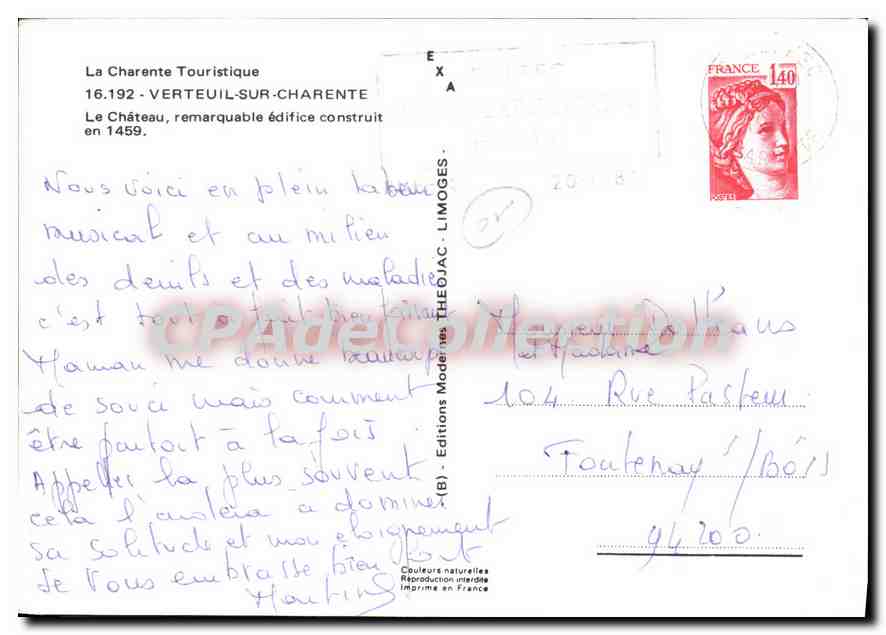 La Charente Touristique
16.192 - VERTEUIL-SUR-CHARENTE
Le Château, remarquable édifice construit
en 1459.
EXA
FRANCE 1,40
POSTES
Nous voici en plein
musical et au milieu
des deuils et des maladies
c'est tout à fait
Maman me donne beaucoup
de souci mais comment
être partout à la fois
Appeller la plus souvent
cela l'aidera à dominer
sa solitude et mon éloignement
Je vous embrasse bien fort
(B) - Editions Modernes THEOJAC - LIMOGES -
Monsieur
et Madame
104 Rue Pasteur
Fontenay s/Bois
94200
Couleurs naturelles
Réproduction interdite
Imprimé en France
CPAdeCollection